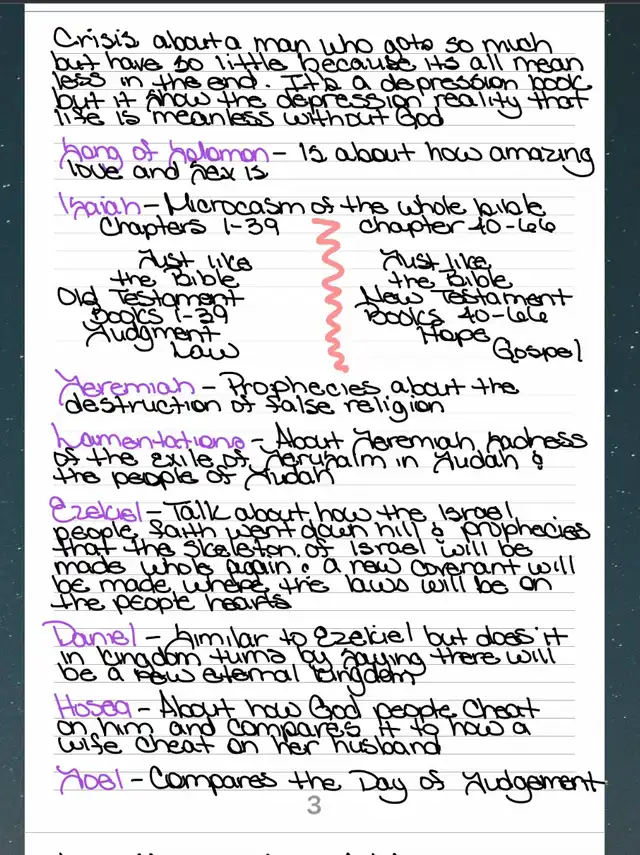 Crisis about a man who gots so much
but have so little because its all mean
less in the end. It's a depression book
but it show the depression reality that
life is meanless without God
Song of Solomon - Is about how amazing
love and sex is
Isaiah - Microcasm of the whole bible
Chapters 1-39
chapter 40-66
Just like
the Bible
Old Testament
Books 1-39
Judgment
Law
Just like
the Bible
New Testament
Books 40-66
Hope
Gospel
Jeremiah - Prophecies about the
destruction of false religion
Lamentations - About Jeremiah sadness
of the exile of Jerusalm in Judah &
the people of Judah
Ezekiel - Talk about how the Israel
people faith went down hill & prophecies
that the skeleton of Israel will be
made whole again & a new covenant will
be made where the laws will be on
the people hearts
Daniel - Similar to Ezekiel but does it
in kingdom turns by saying there will
be a new eternal kingdom
Hosea - About how God people cheat
on him and compares it to how a
wife cheat on her husband
Joel - Compares the Day of Judgement
3